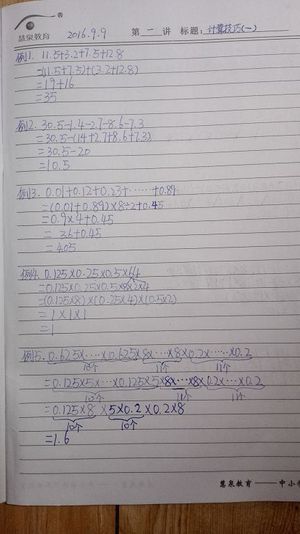 慧泉教育 2016.9.9 第一讲 标题：计算技巧(一)
例1. 11.5+3.2+7.5+12.8
=(11.5+7.5)+(3.2+12.8)
=19+16
=35
例2. 30.5-1.4-2.7-8.6-7.3
=30.5-(1.4+2.7+8.6+7.3)
=30.5-20
=10.5
例3. 0.01+0.12+0.23+……+0.89
=(0.01+0.89)×8÷2+0.45
=0.9×4+0.45
=3.6+0.45
=4.05
例4. 0.125×0.25×0.5×64
=0.125×0.25×0.5×8×2×4
=(0.125×8)×(0.25×4)×(0.5×2)
=1×1×1
=1
例5. 0.625×…×0.625×8×…×8×0.2×…×0.2
10个 11个 11个
=0.125×5×…×0.125×5×8×…×8×0.2×…×0.2
10个 11个 11个
=0.125×8×5×0.2×0.2×8
10个 10个
=1.6
慧泉教育——中小